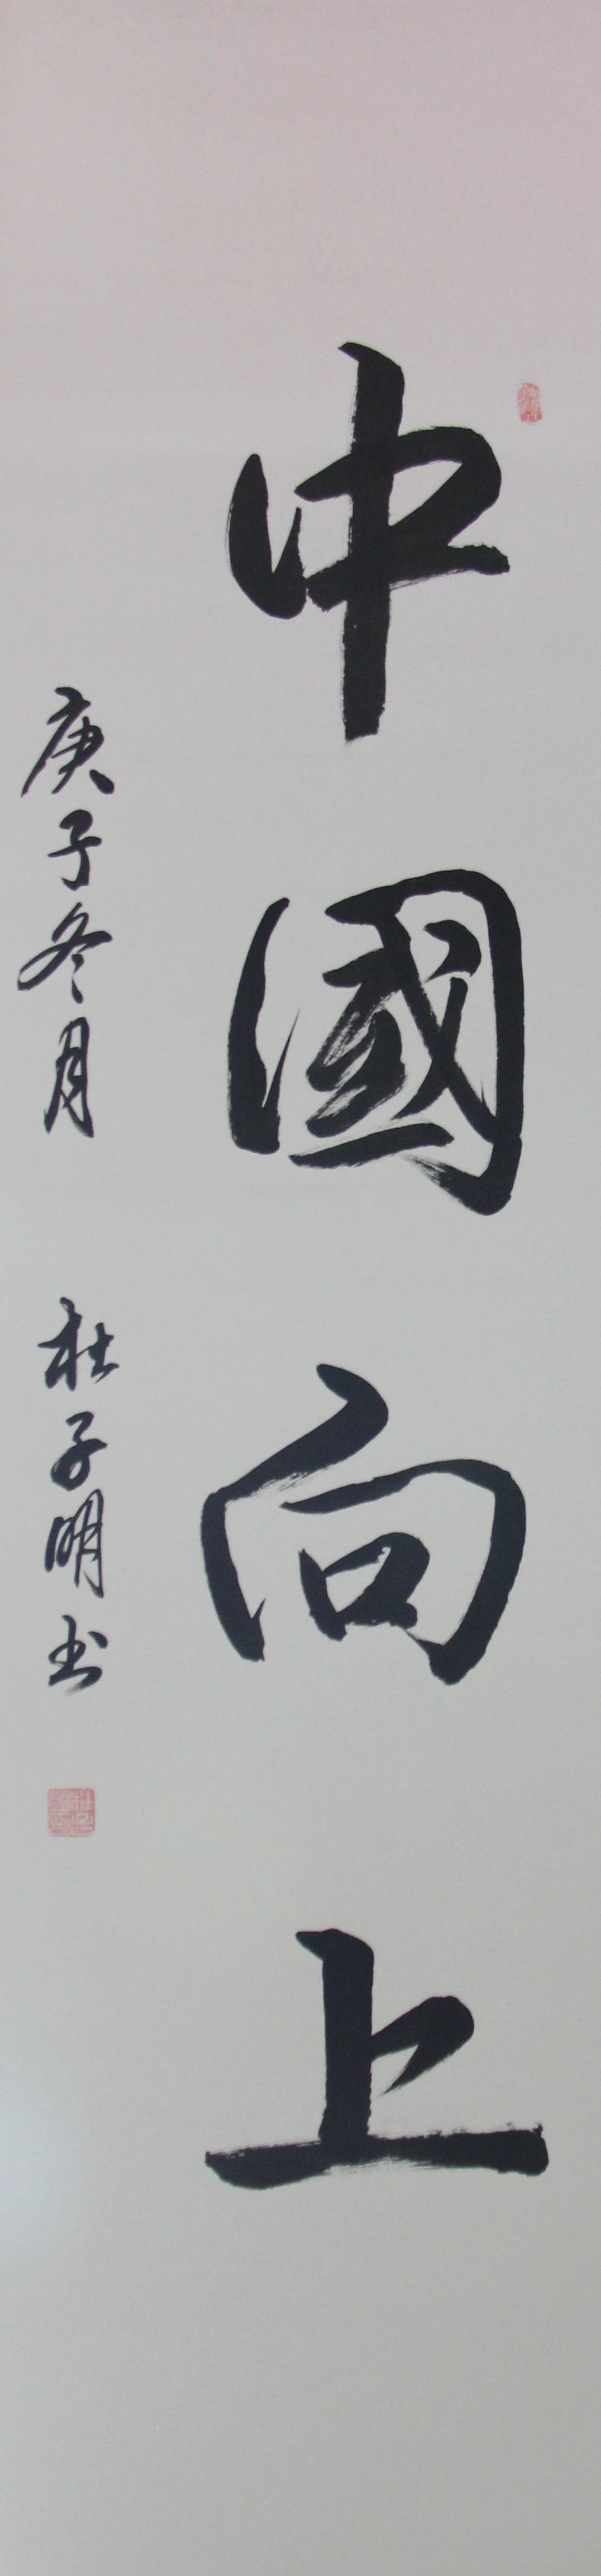 中國向上
庚子冬月 杜子明书